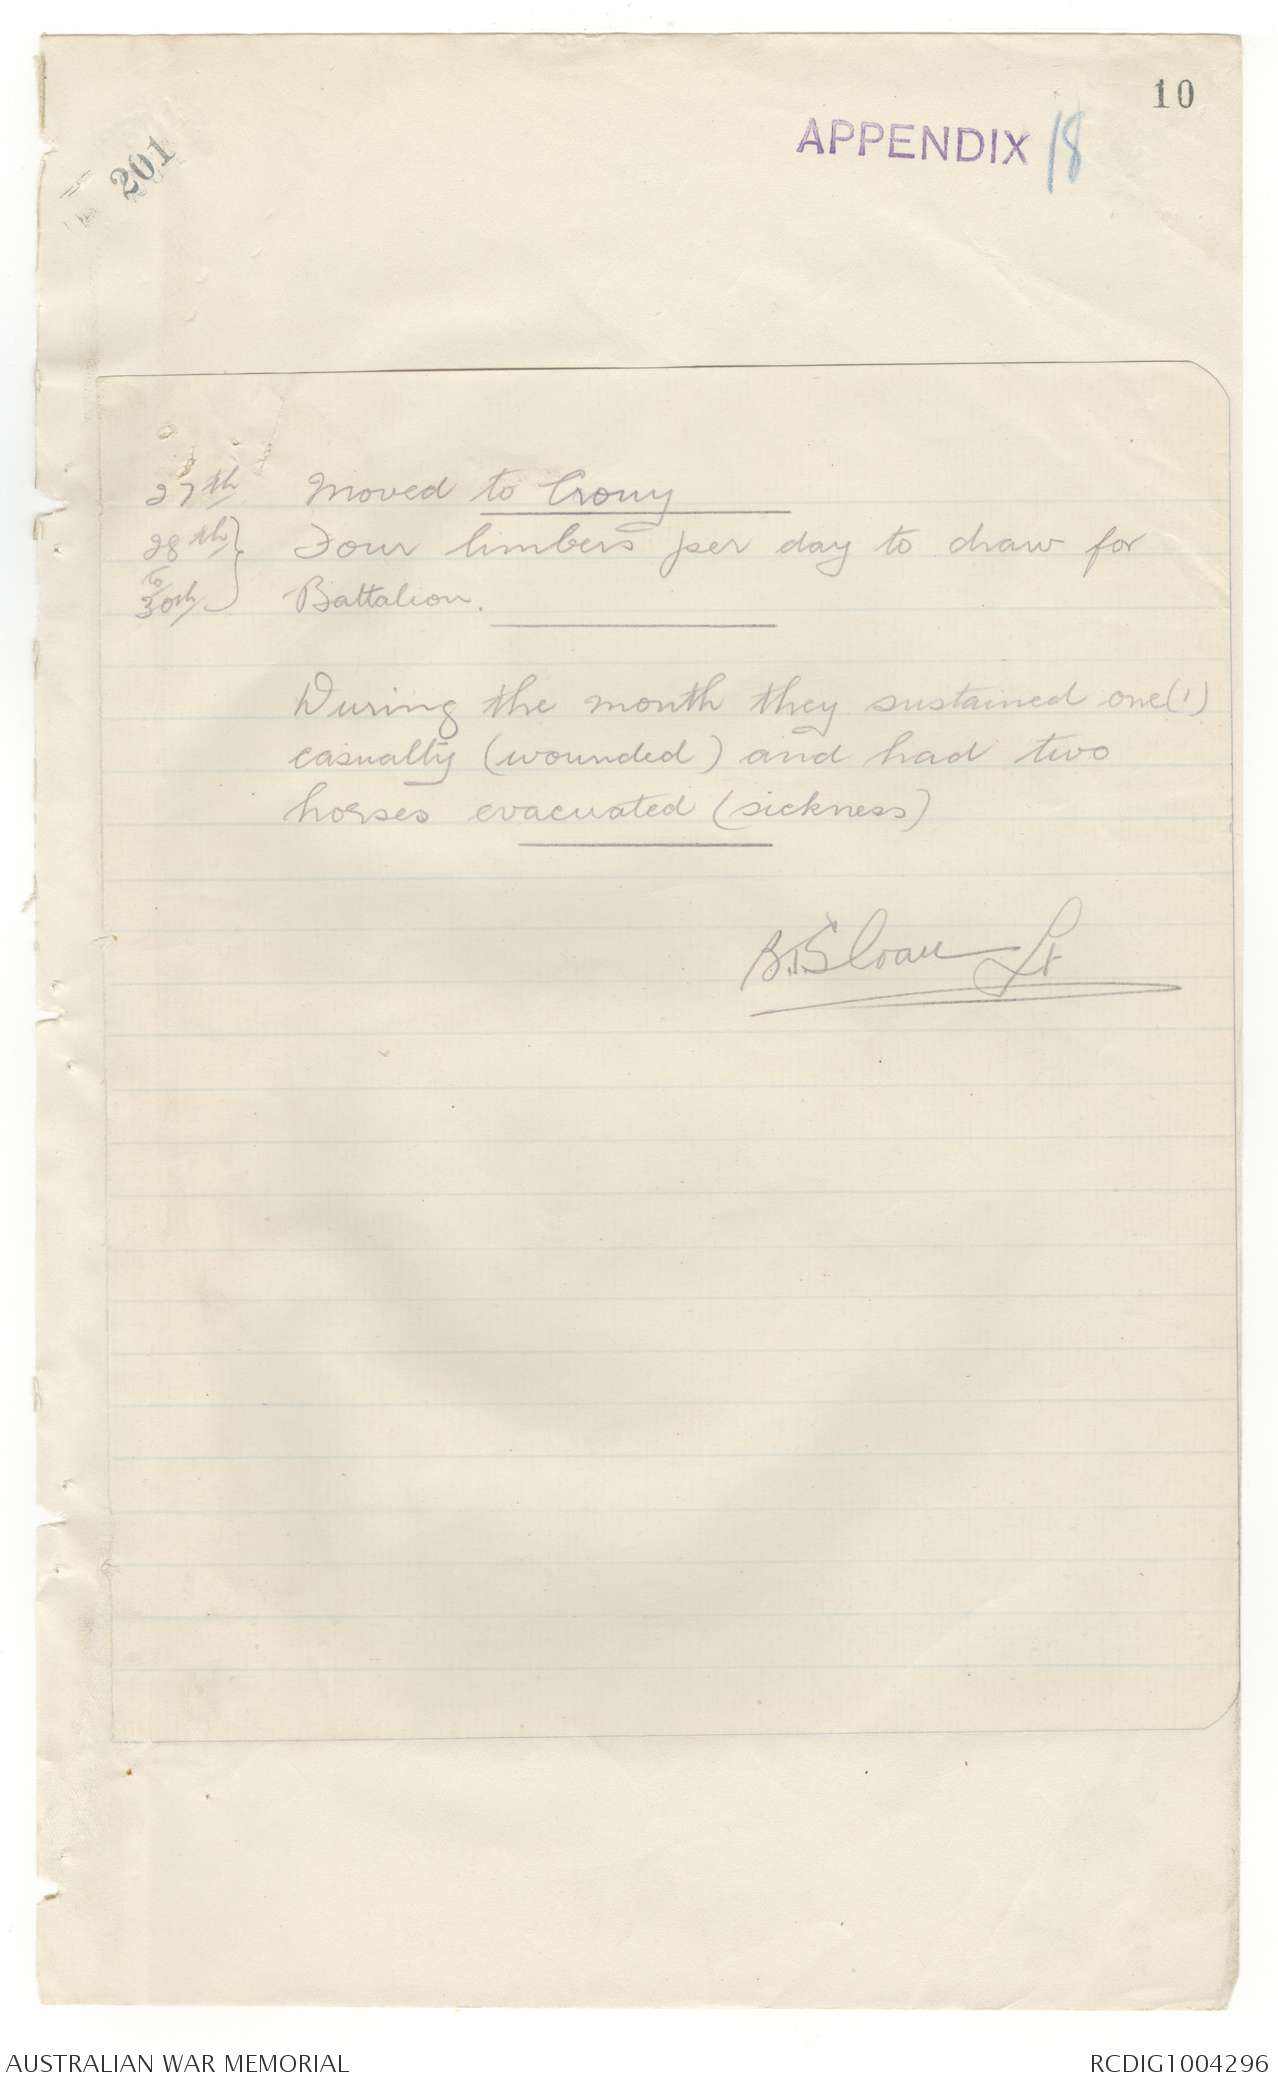 10
APPENDIX 18
201
27th Moved to Crouy
28th Four limbers per day to draw for
to
30th Battalion.
During the month they sustained one (1)
casualty (wounded) and had two
horses evacuated (sickness)
Sloan Lt
AUSTRALIAN WAR MEMORIAL
RCDIG1004296